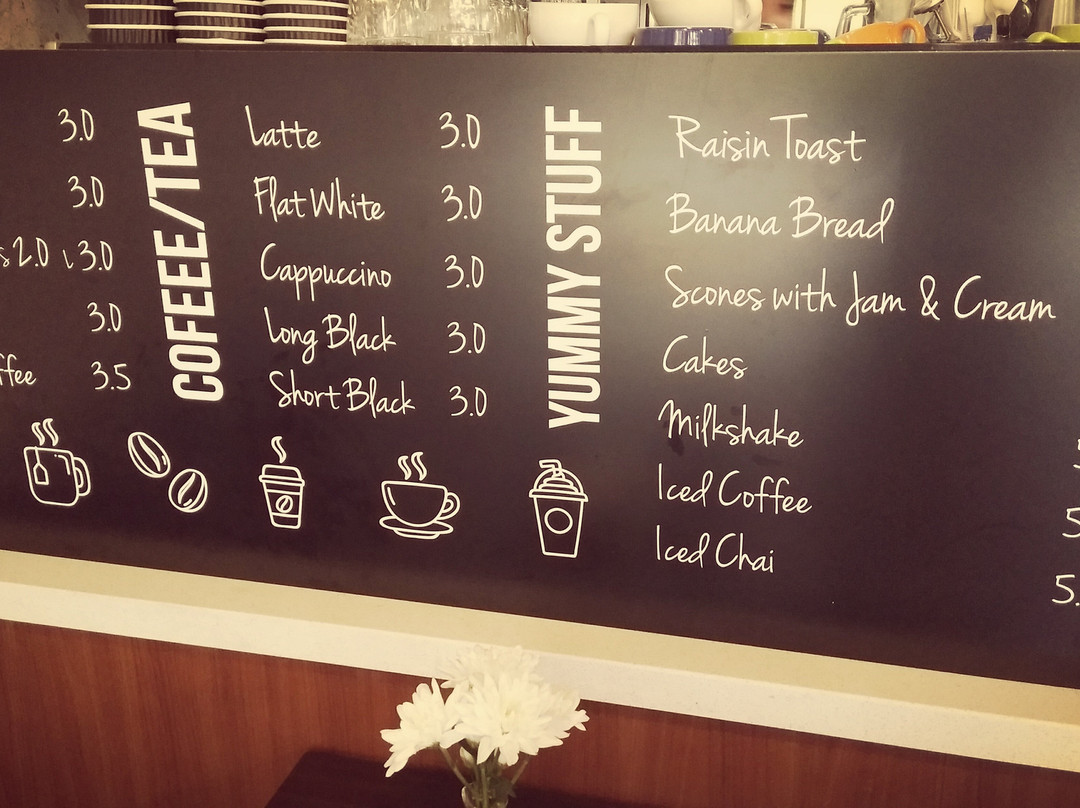 3.0
3.0
s 2.0 L 3.0
3.0
ffee 3.5
COFEE/TEA
Latte 3.0
Flat White 3.0
Cappuccino 3.0
Long Black 3.0
Short Black 3.0
YUMMY STUFF
Raisin Toast
Banana Bread
Scones with Jam & Cream
Cakes
Milkshake
Iced Coffee 5
Iced Chai 5.